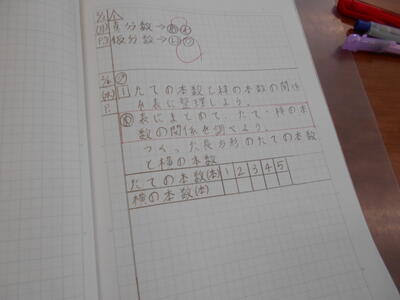 真分数→
仮分数→
1 たての本数と横の本数の関係
を表に整理しよう。
表にまとめて、たて・横の本
数の関係を調べよう。
つくった長方形のたての本数
と横の本数
たての本数(本) 1 2 3 4 5
横の本数(本)